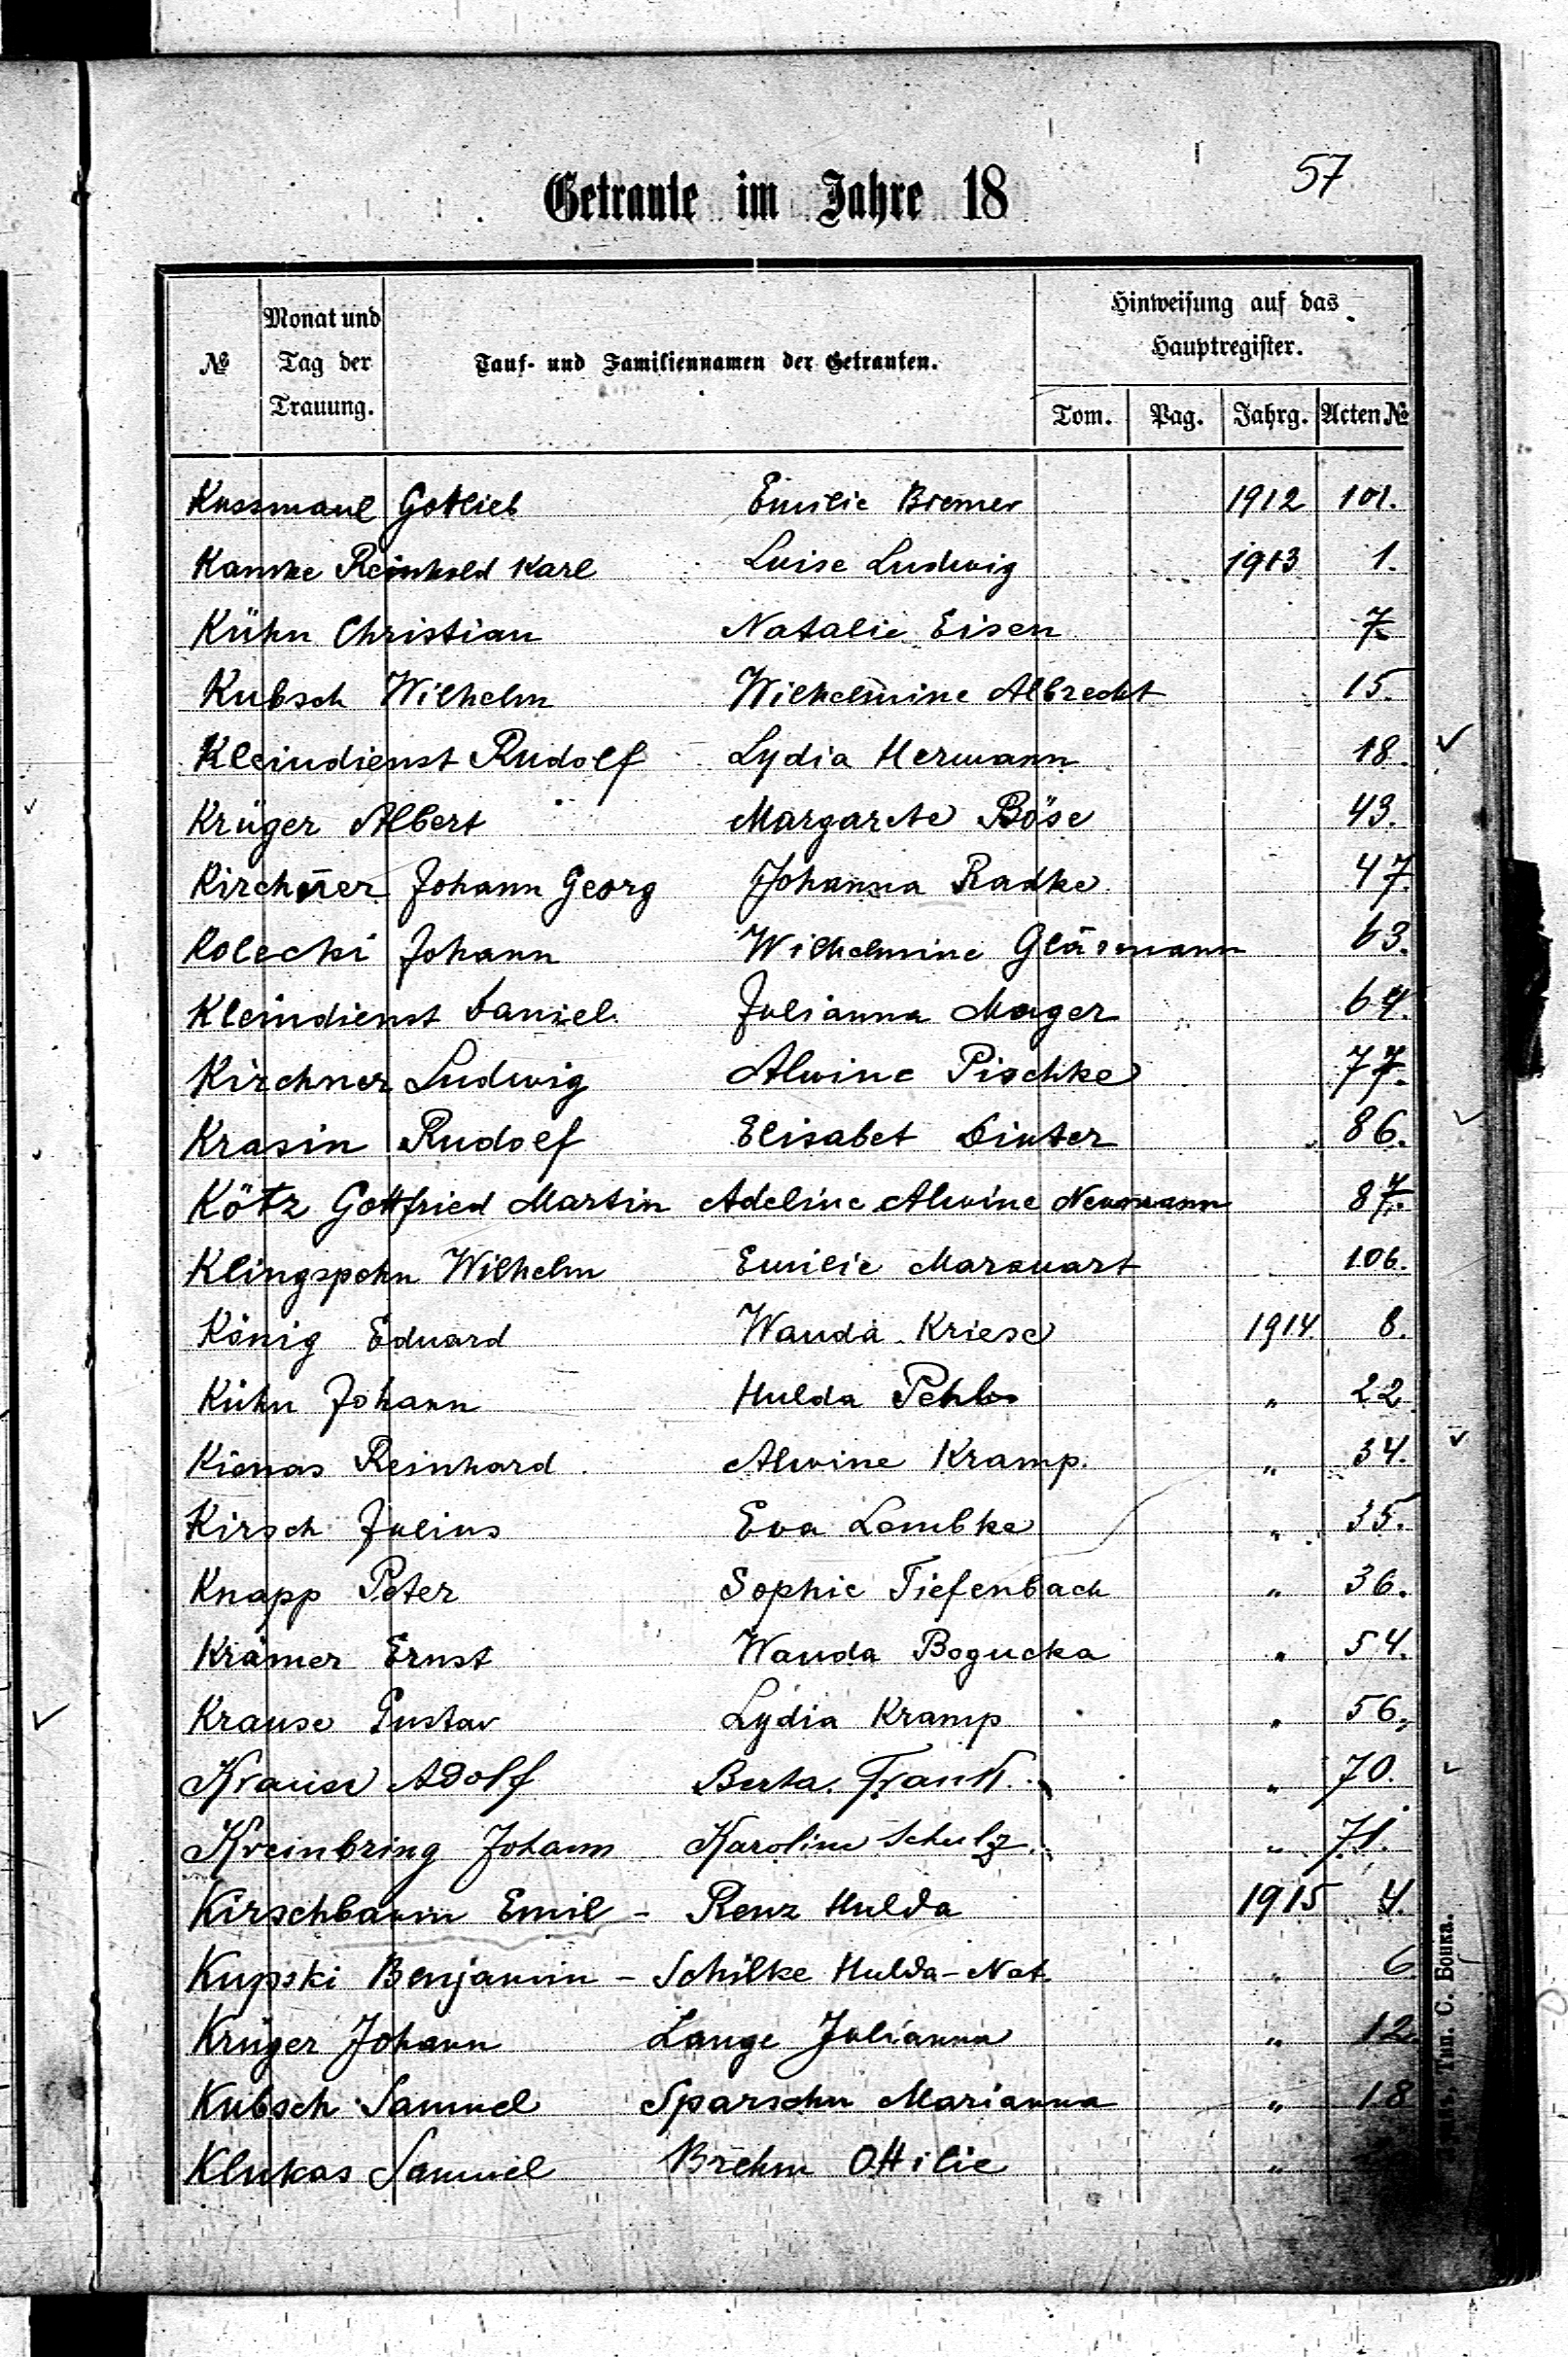 57
Getraute im Jahre 18
№ Monat und Tag der Trauung. Tauf- und Familiennamen der Getrauten. Hinweisung auf das Hauptregister.
Tom. Pag. Jahrg. Acten №
Kussmaul Gottlieb Emilie Bremer 1912 101.
Kamke Reinhold Karl Luise Ludwig 1913 1.
Kühn Christian Natalie Eisen 7.
Kubsch Wilhelm Wilhelmine Albrecht 15.
Kleindienst Rudolf Lydia Hermann 18.
Krüger Albert Margarete Böse 43.
Kirchner Johann Georg Johanna Radke 47.
Kolecki Johann Wilhelmine Gläsmann 63.
Kleindienst Daniel Julianna Mager 64.
Kirchner Ludwig Alwine Pischke 77.
Krasin Rudolf Elisabet Dinter 86.
Kötz Gottfried Martin Adeline Alwine Neumann 87.
Klingspohn Wilhelm Emilie Marquart 106.
König Eduard Wanda Kriese 1914 8.
Kühn Johann Hulda 〃 22
Kienas Reinhard Alwine Kramp. 〃 34.
Kirsch Julius Eva Lembke 〃 35.
Knapp Peter Sophie Tiefenbach 〃 36.
Krämer Ernst Wanda Bogucka 〃 54.
Krause Gustav Lydia Kramp 〃 56.
Krause Adolf Berta 〃 70.
Kreinbring Johann Karoline Schulz. 〃 71.
Kirschbaum Emil - Renz Hulda 1915 4.
Kupski Benjamin - Schilke Hulda-Nat. 〃 6
Krüger Johann Lange Julianna 〃 12.
Kubsch Samuel Sparschu Marianna 〃 18
Klukas Samuel Brehm Ottilie 〃
Тип. С. Вочка.